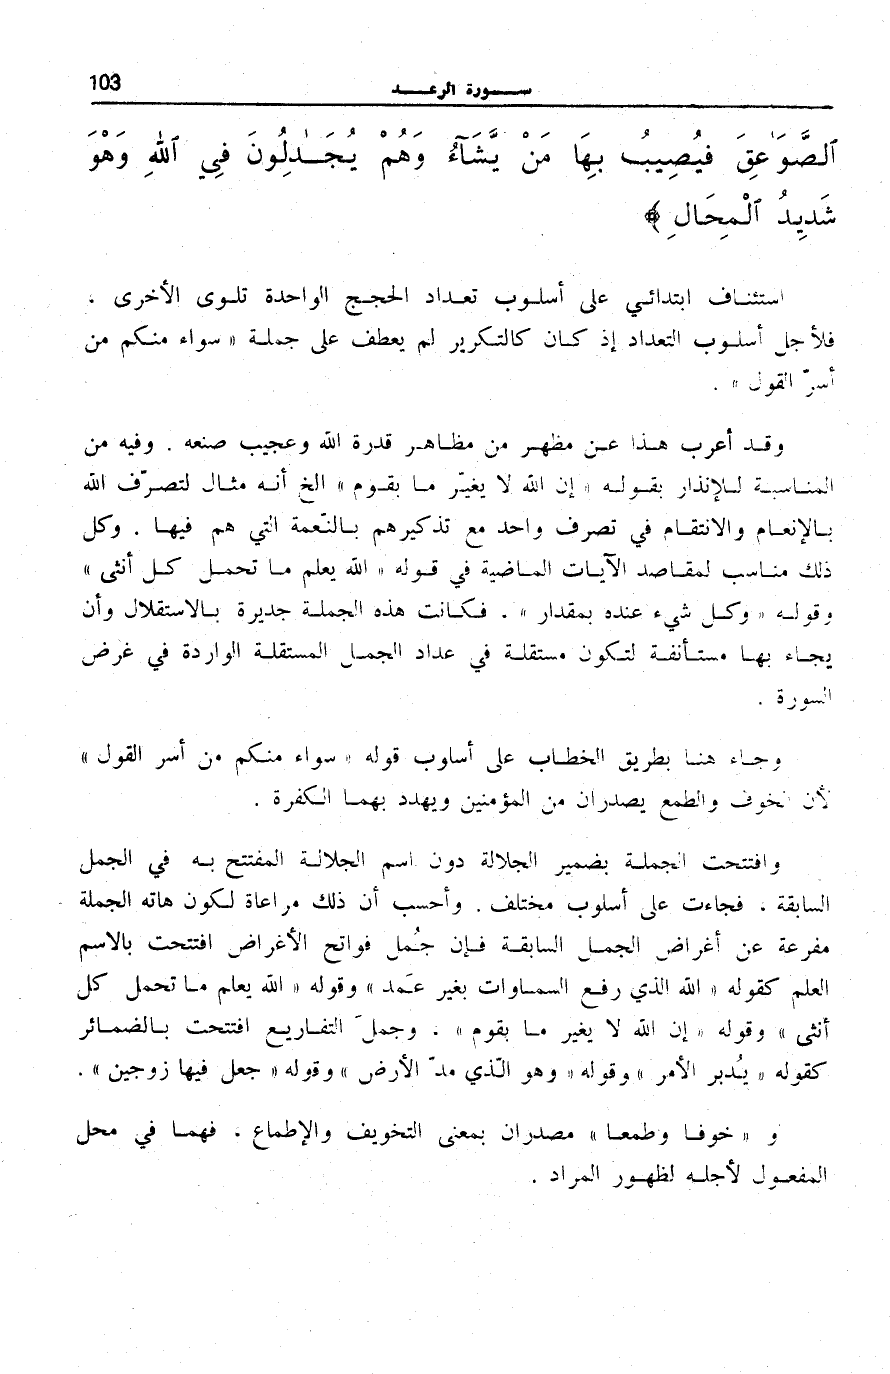 103
سورة الرعد
ٱلصَّوَٰعِقَ فَيُصِيبُ بِهَا مَنْ يَّشَآءُ وَهُمْ يُجَٰدِلُونَ فِي ٱللهِ وَهْوَ
شَدِيدُ ٱلْمِحَالِ ﴾
استئناف ابتدائي على أسلوب تعداد الحجج الواحدة تلوى الأخرى ،
فلأجل أسلوب التعداد إذ كان كالتكرير لم يعطف على جملة « سواء منكم من
أسرّ القول » .
وقد أعرب هذا عن مظهر من مظاهر قدرة الله وعجيب صنعه . وفيه من
المناسبة للإنذار بقوله « إن الله لا يغيّر ما بقوم » الخ أنه مثال لتصرّف الله
بالإنعام والانتقام في تصرف واحد مع تذكيرهم بالنّعمة التي هم فيها . وكل
ذلك مناسب لمقاصد الآيات الماضية في قوله « الله يعلم ما تحمل كل أنثى »
وقوله « وكل شيء عنده بمقدار » . فكانت هذه الجملة جديرة بالاستقلال وأن
يجاء بها مستأنفة لتكون مستقلة في عداد الجمل المستقلة الواردة في غرض
السورة .
وجاء هنا بطريق الخطاب على أسلوب قوله « سواء منكم من أسر القول »
لأن الخوف والطمع يصدران من المؤمنين ويهدد بهما الكفرة .
وافتتحت الجملة بضمير الجلالة دون اسم الجلالة المفتتح به في الجمل
السابقة ، فجاءت على أسلوب مختلف . وأحسب أن ذلك مراعاة لكون هاته الجملة
مفرعة عن أغراض الجمل السابقة فإن جُمل فواتح الأغراض افتتحت بالاسم
العلم كقوله « الله الذي رفع السماوات بغير عَمد » وقوله « الله يعلم ما تحمل كل
أنثى » وقوله « إن الله لا يغير ما بقوم » ، وجملَ التفاريع افتتحت بالضمائر
كقوله « يُدبر الأمر » وقوله « وهو الّذي مدّ الأرض » وقوله « جعل فيها زوجين » .
و « خوفا وطمعا » مصدران بمعنى التخويف والإطماع ، فهما في محل
المفعول لأجله لظهور المراد .